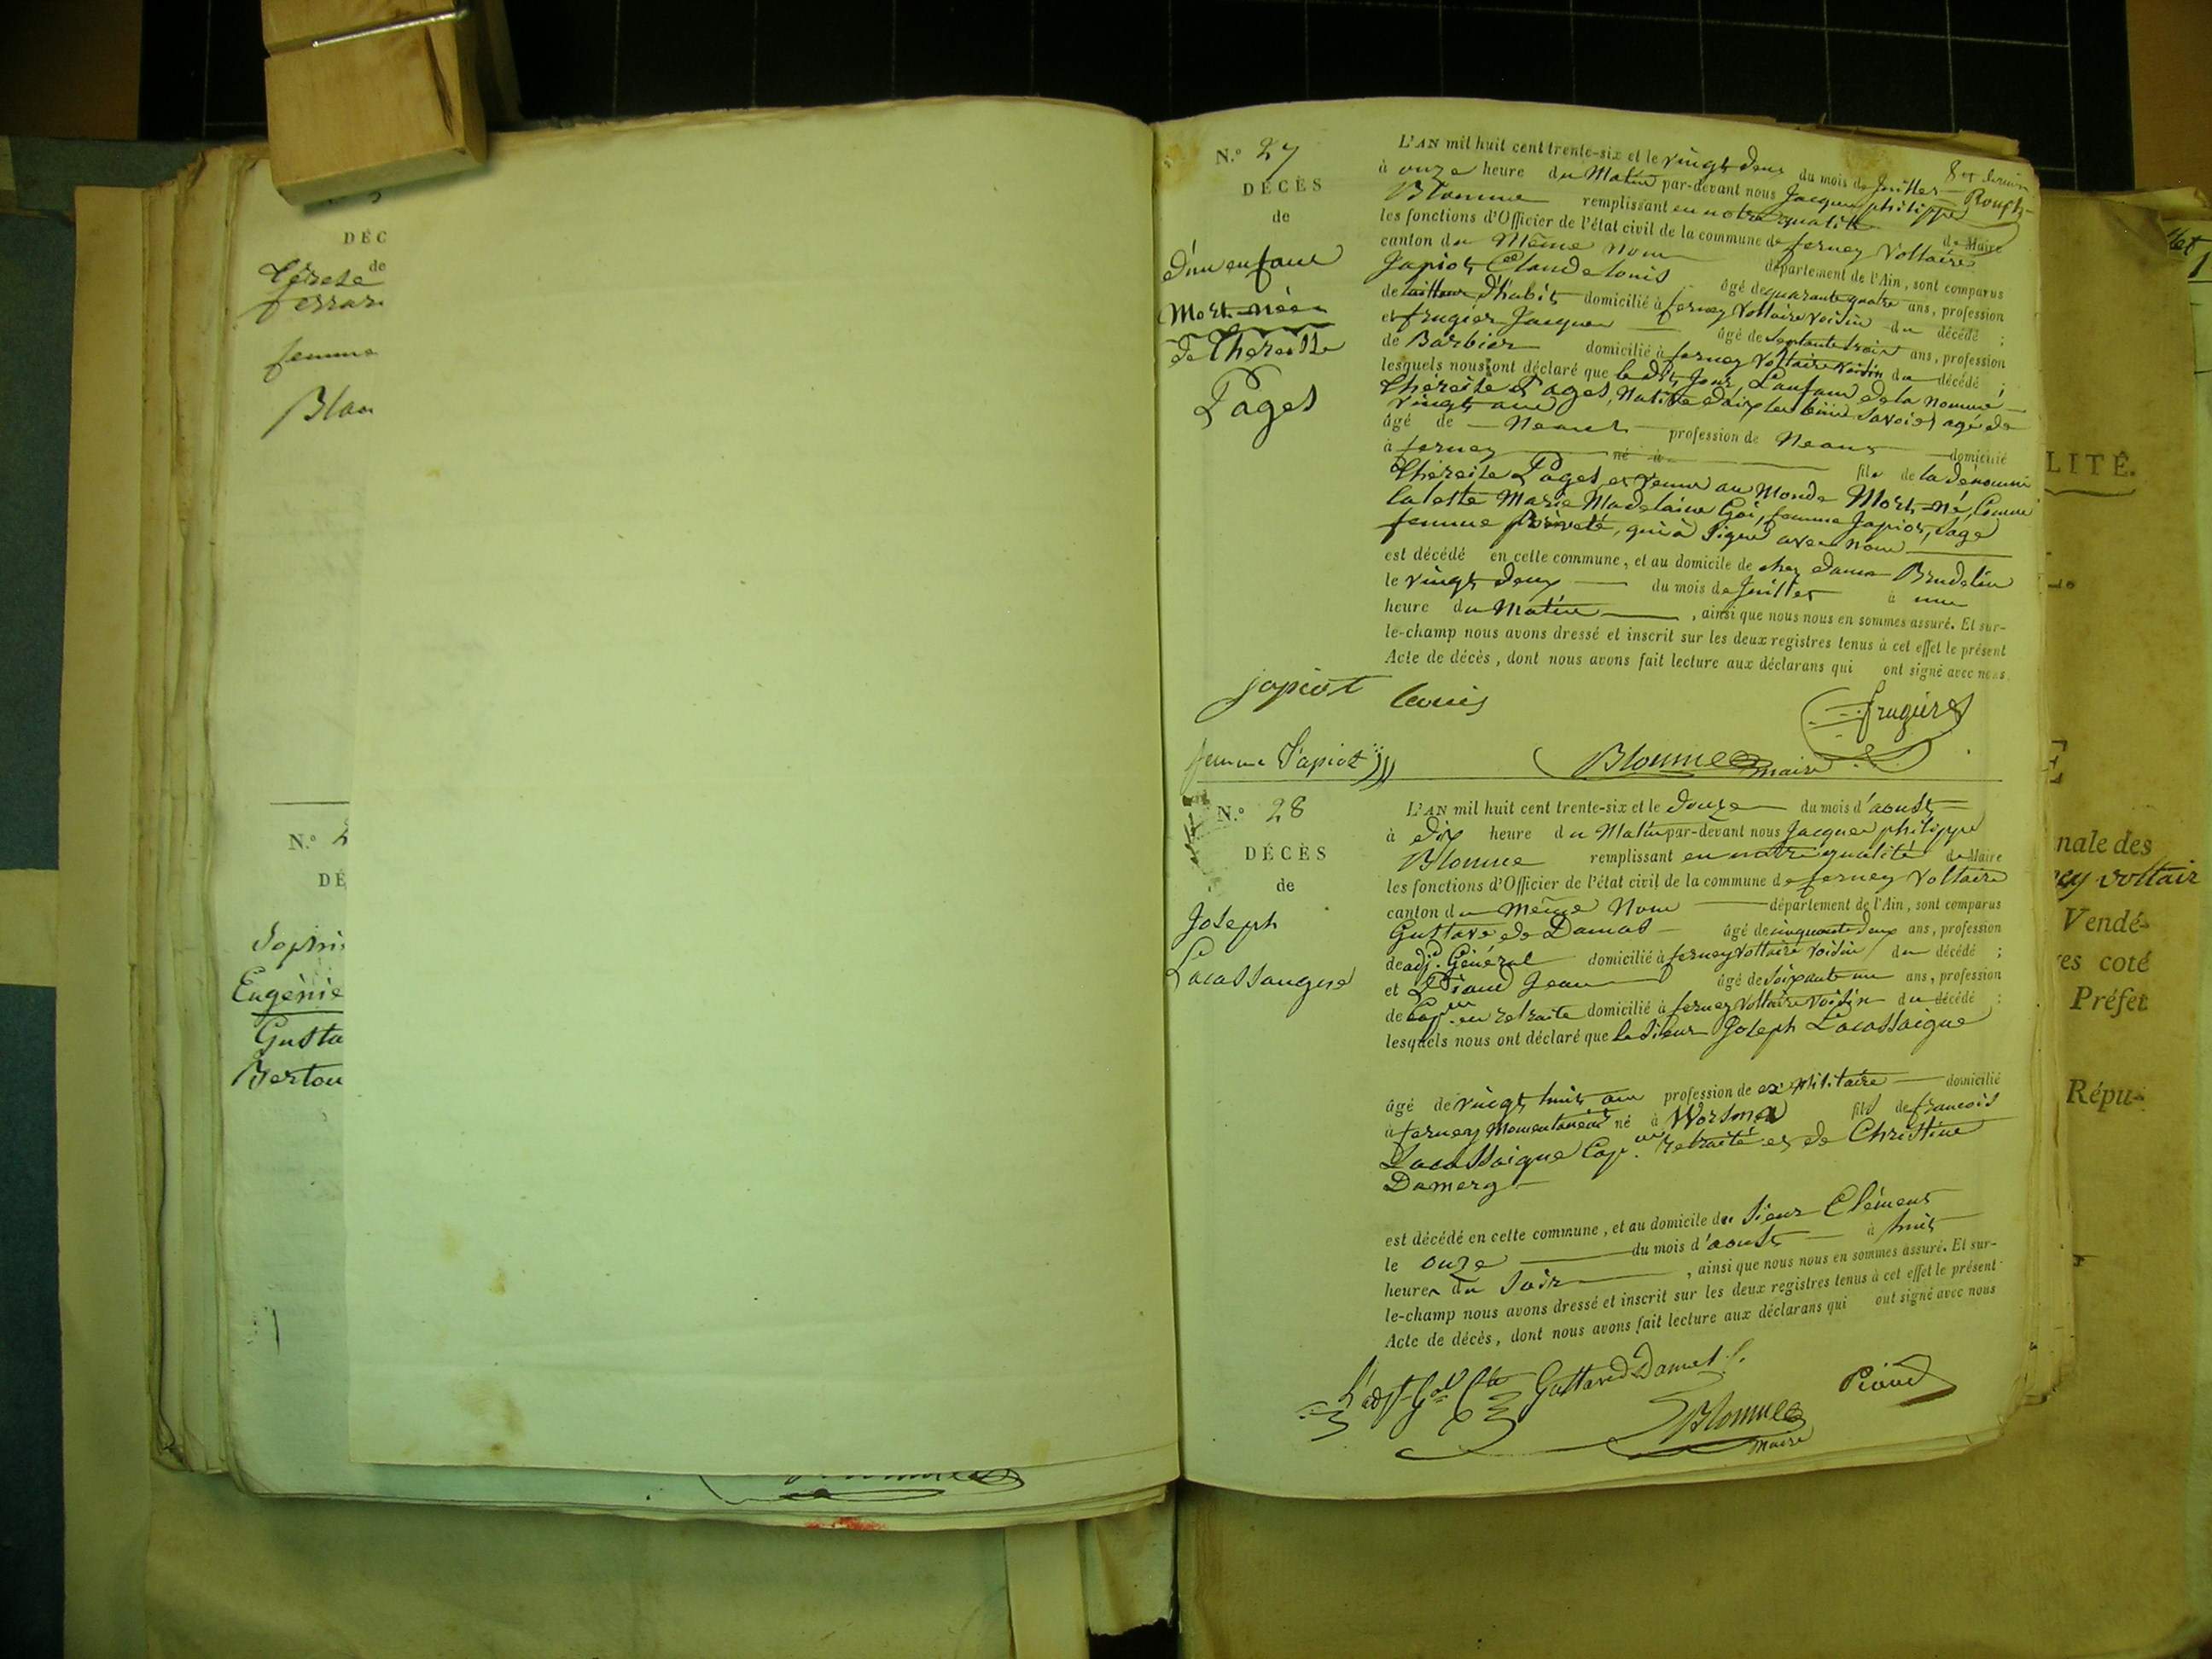 DÉC
de
Térese
ferrar
femme
Blan
N.º 2
DÉ
Sophi
Eugénie
Gusta
Bertou
N.º 27
DÉCÈS
de
d'un enfant
Mort-née
de Thereise
Pages
L'AN mil huit cent trente-six et le vingt deux du mois de Juillet
à onze heure du Matin par-devant nous Jacques philippe
Blomme remplissant en notre qualité de Maire
les fonctions d'Officier de l'état civil de la commune de ferney Voltaire
canton du Même Nom département de l'Ain, sont comparus
Japiot Claude Louis âgé de quarante quatre ans, profession
de tailleur d'habit domicilié à ferney Voltaire Voisin du décédé ;
et frugier Jacques âgé de Septante trois ans, profession
de Barbier domicilié à ferney Voltaire Voisin du décédé ;
lesquels nous ont déclaré que le dit Jour, L'enfant de la nommé
Théreise Pages, Native d'aix les bains Savoie, agé de
vingt ans
âgé de Neant profession de Neant domicilié
à ferney né à fils de la dénommé
Théreise Pages est venu au Monde Mort-né, Comme
l'atteste Marie Madelaine Goi, femme Japiot, Sage
femme, qui à Signé avec nous
est décédé en cette commune, et au domicile de chez dame Brudelin
le vingt deux du mois de Juillet à une
heure du Matin, ainsi que nous nous en sommes assuré. Et sur-
le-champ nous avons dressé et inscrit sur les deux registres tenus à cet effet le présent
Acte de décès, dont nous avons fait lecture aux déclarans qui ont signé avec nous.
japiot Louis
frugier
femme Japiot
Blomme maire
N.º 28
DÉCÈS
de
Joseph
Lacassaugne
L'AN mil huit cent trente-six et le douze du mois d'aoust
à dix heure du Matin par-devant nous Jacques philippe
Blomme remplissant en notre qualité de Maire
les fonctions d'Officier de l'état civil de la commune de ferney Voltaire
canton du Même Nom département de l'Ain, sont comparus
Gustave de Damas âgé de cinquante deux ans, profession
de adj. Général domicilié à ferney Voltaire Voisin du décédé ;
et Piaud Jean âgé de Soixante un ans, profession
de Cap.ne en retraite domicilié à ferney Voltaire Voisin du décédé ;
lesquels nous ont déclaré que le Sieur Joseph Lacassaigne
âgé de vingt huit ans profession de ex Militaire domicilié
à ferney Momentanement né à Worsma fils de francois
Lacassaigne Cap.ne retraité et de Christine
Damerg
est décédé en cette commune, et au domicile du Sieur Clément
le onze du mois d'aoust à huit
heures du Soir, ainsi que nous nous en sommes assuré. Et sur-
le-champ nous avons dressé et inscrit sur les deux registres tenus à cet effet le présent
Acte de décès, dont nous avons fait lecture aux déclarans qui ont signé avec nous
L'adj.t Gal Cte Gustave Damas
Piaud
Blomme
maire
LITÉ.
nale des
ey voltair
Vendé-
res coté
Préfet
Répu-